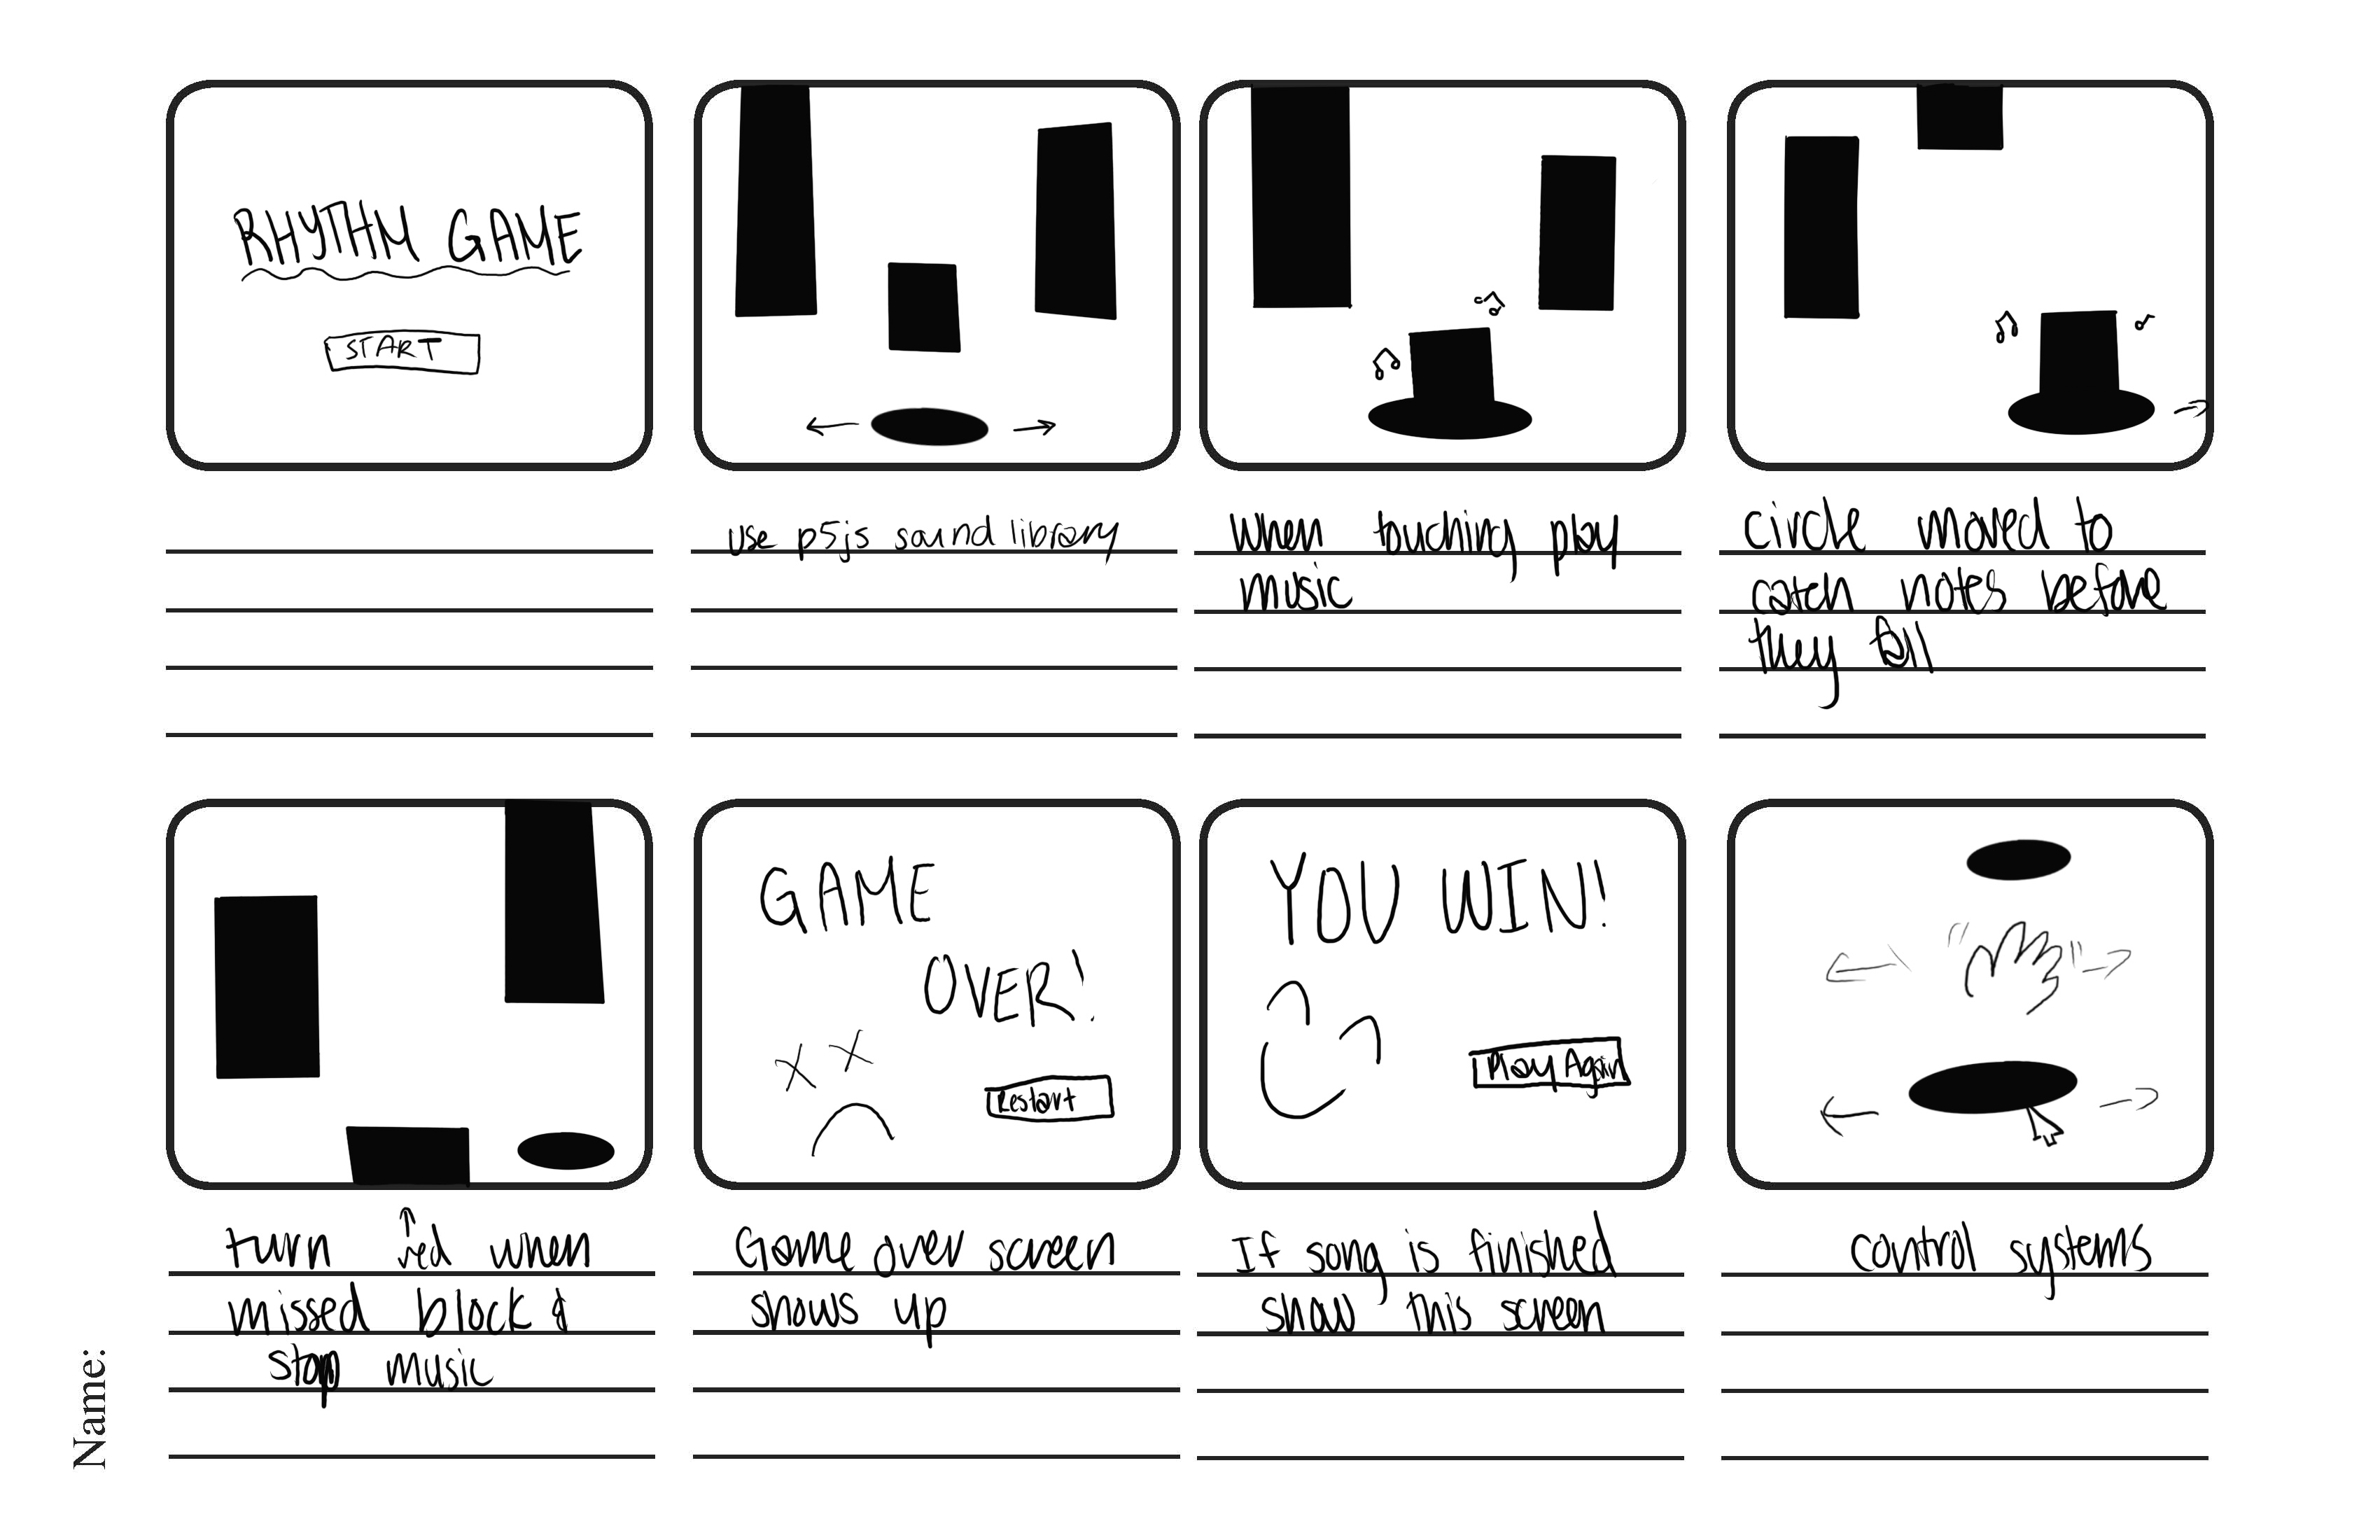 RHYTHM GAME
START
use p5js sound library
when touching play
music
circle moved to
catch notes before
they fall
turn red when
missed block &
stop music
GAME
OVER!
Restart
Game over screen
shows up
YOU WIN!
Play Again
If song is finished
show this screen
control systems
Name: